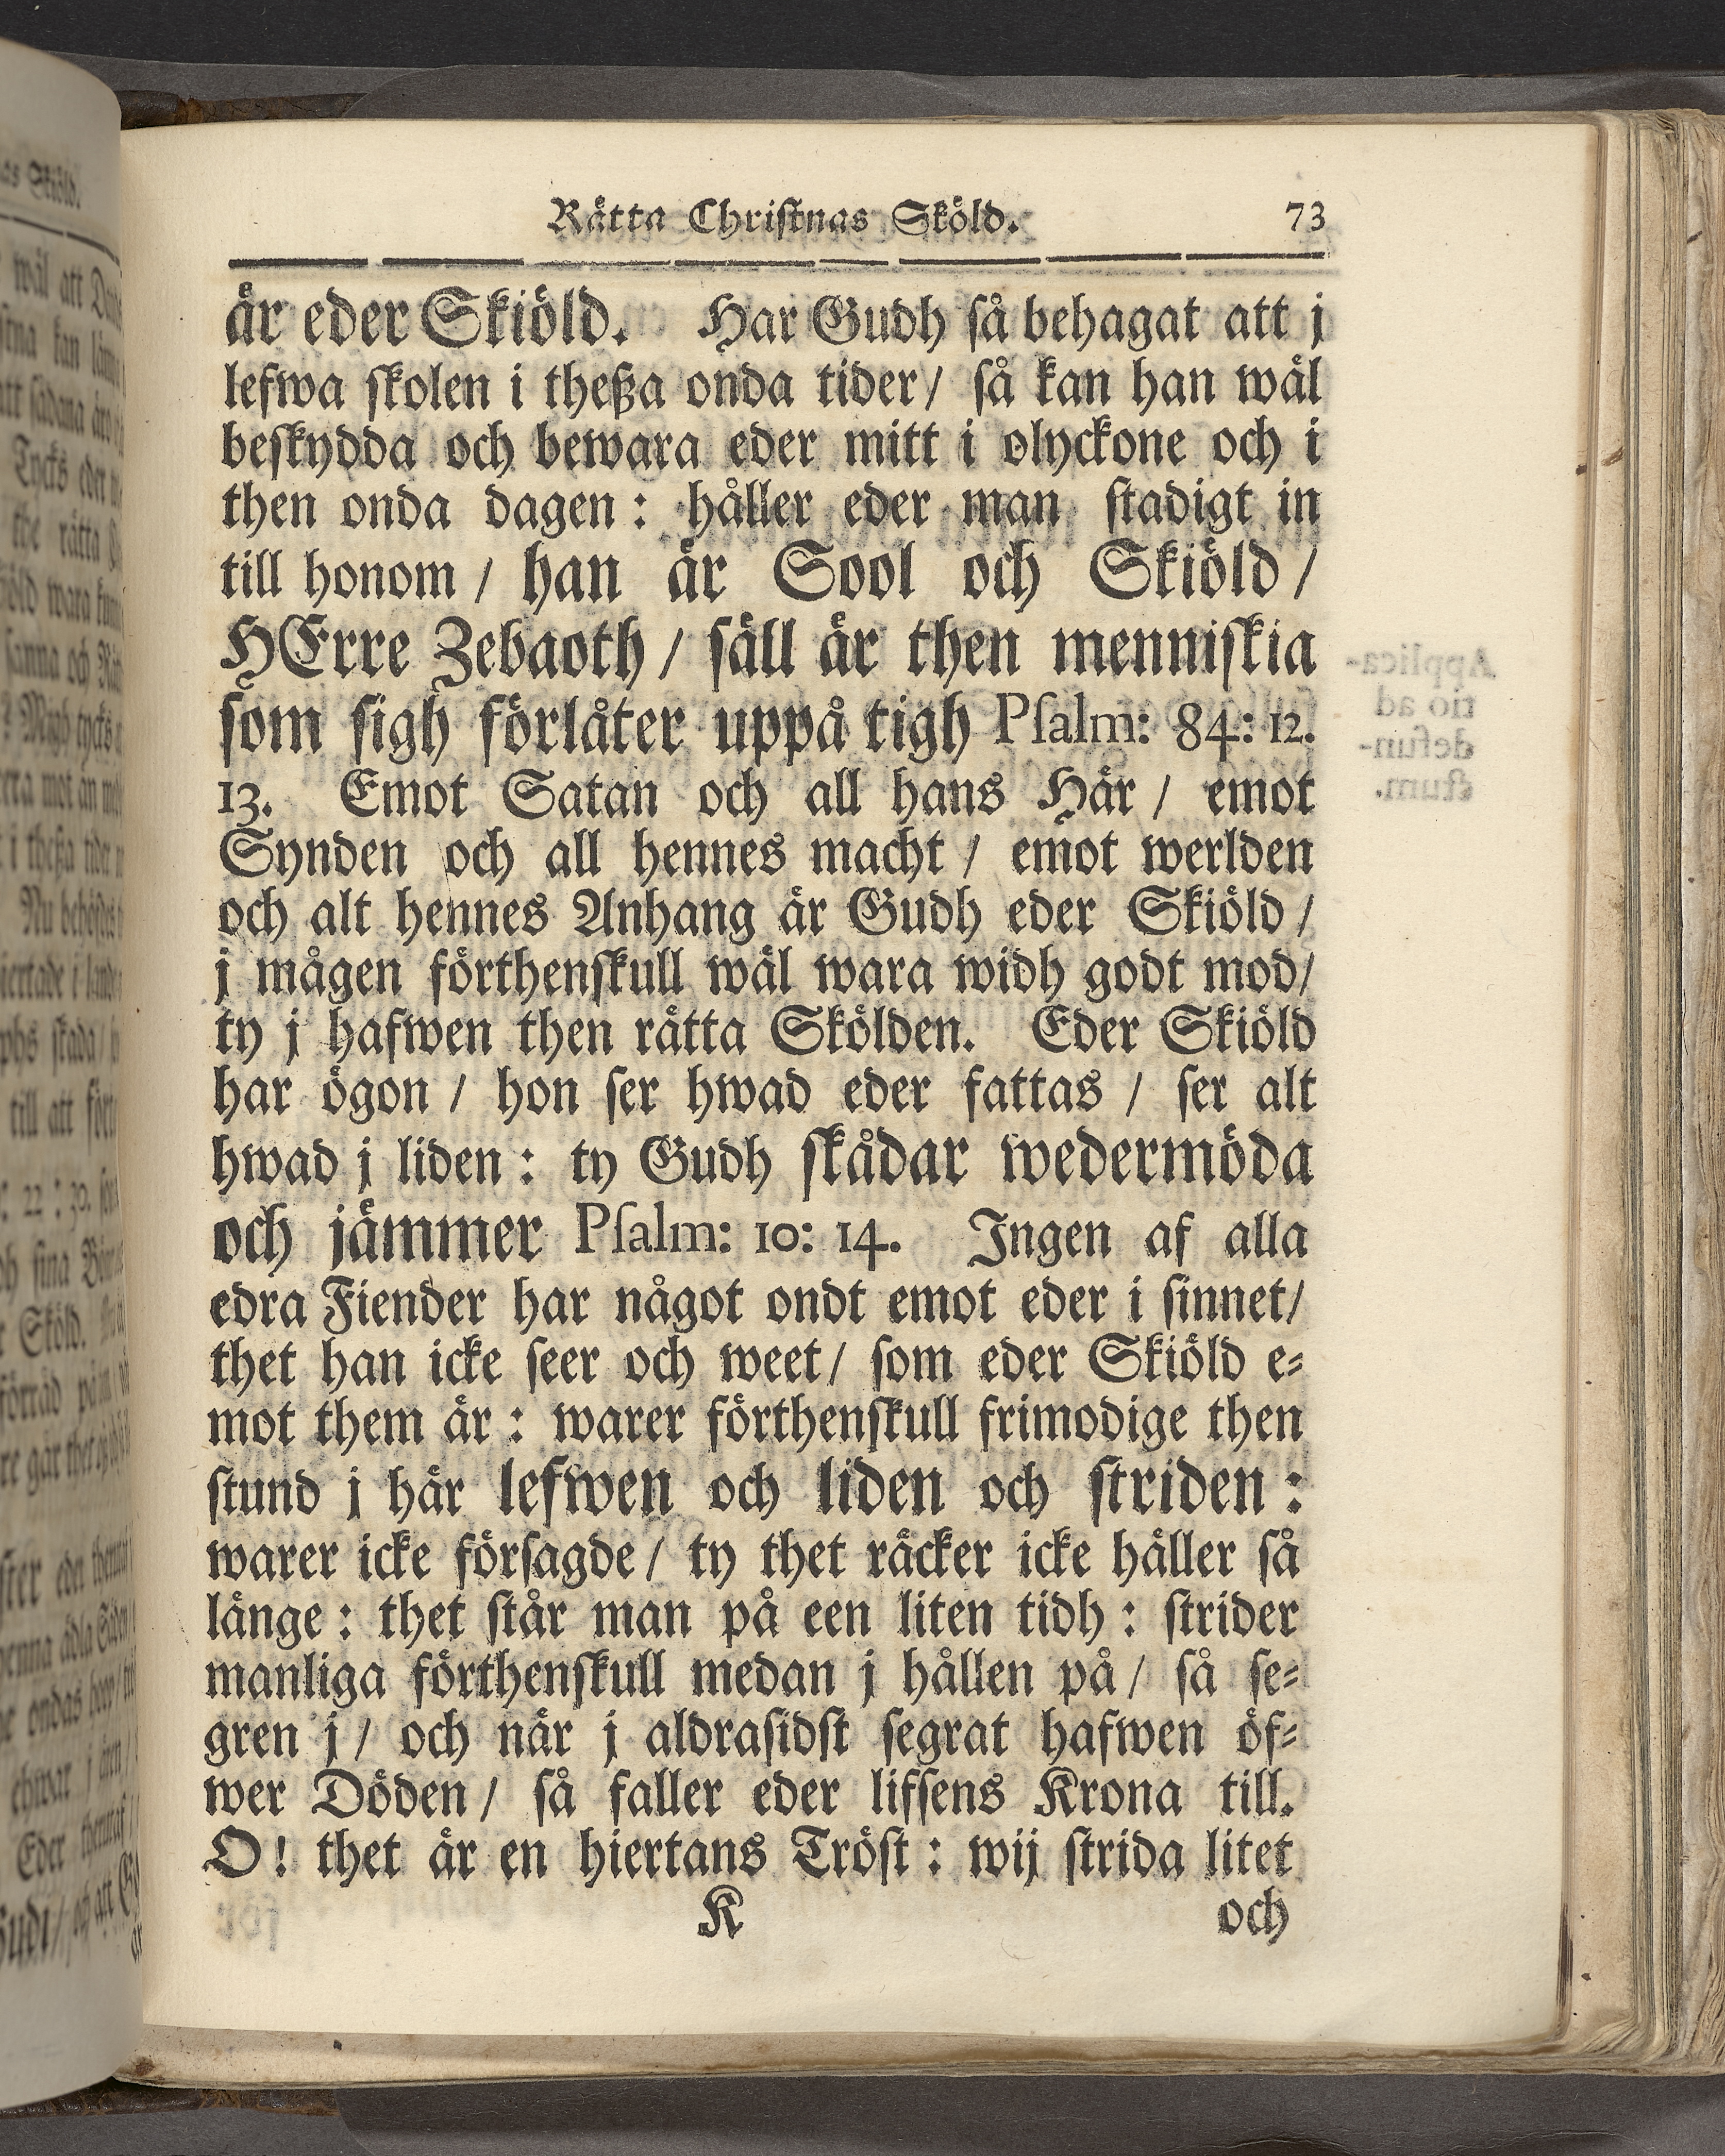 Rätta Christnas Sköld. 73
är eder Skiöld. Har Gudh så behagat att j
lefwa skolen i theßa onda tider/ så kan han wäl
beskydda och bewara eder mitt i olyckone och i
then onda dagen: håller eder man stadigt in
till honom / han är Sool och Skiöld /
HErre Zebaoth / säll är then menniskia
som sigh förlåter uppå tigh Psalm: 84: 12.
13. Emot Satan och all hans Här / emot
Synden och all hennes macht / emot werlden
och alt hennes Anhang är Gudh eder Skiöld /
j mågen förthenskull wäl wara widh godt mod/
ty j hafwen then rätta Skölden. Eder Skiöld
har ögon / hon ser hwad eder fattas / ser alt
hwad j liden: ty Gudh skådar wedermöda
och jämmer Psalm: 10: 14. Ingen af alla
edra Fiender har något ondt emot eder i sinnet/
thet han icke seer och weet/ som eder Skiöld e-
mot them är: warer förthenskull frimodige then
stund j här lefwen och liden och striden:
warer icke försagde/ ty thet räcker icke häller så
länge: thet står man på een liten tidh: strider
manliga förthenskull medan j hållen på/ så se-
gren j/ och når j aldrasidst segrat hafwen öf-
wer Döden/ så faller eder lifsens Krona till.
O! thet är en hiertans Tröst: wij strida litet
K och